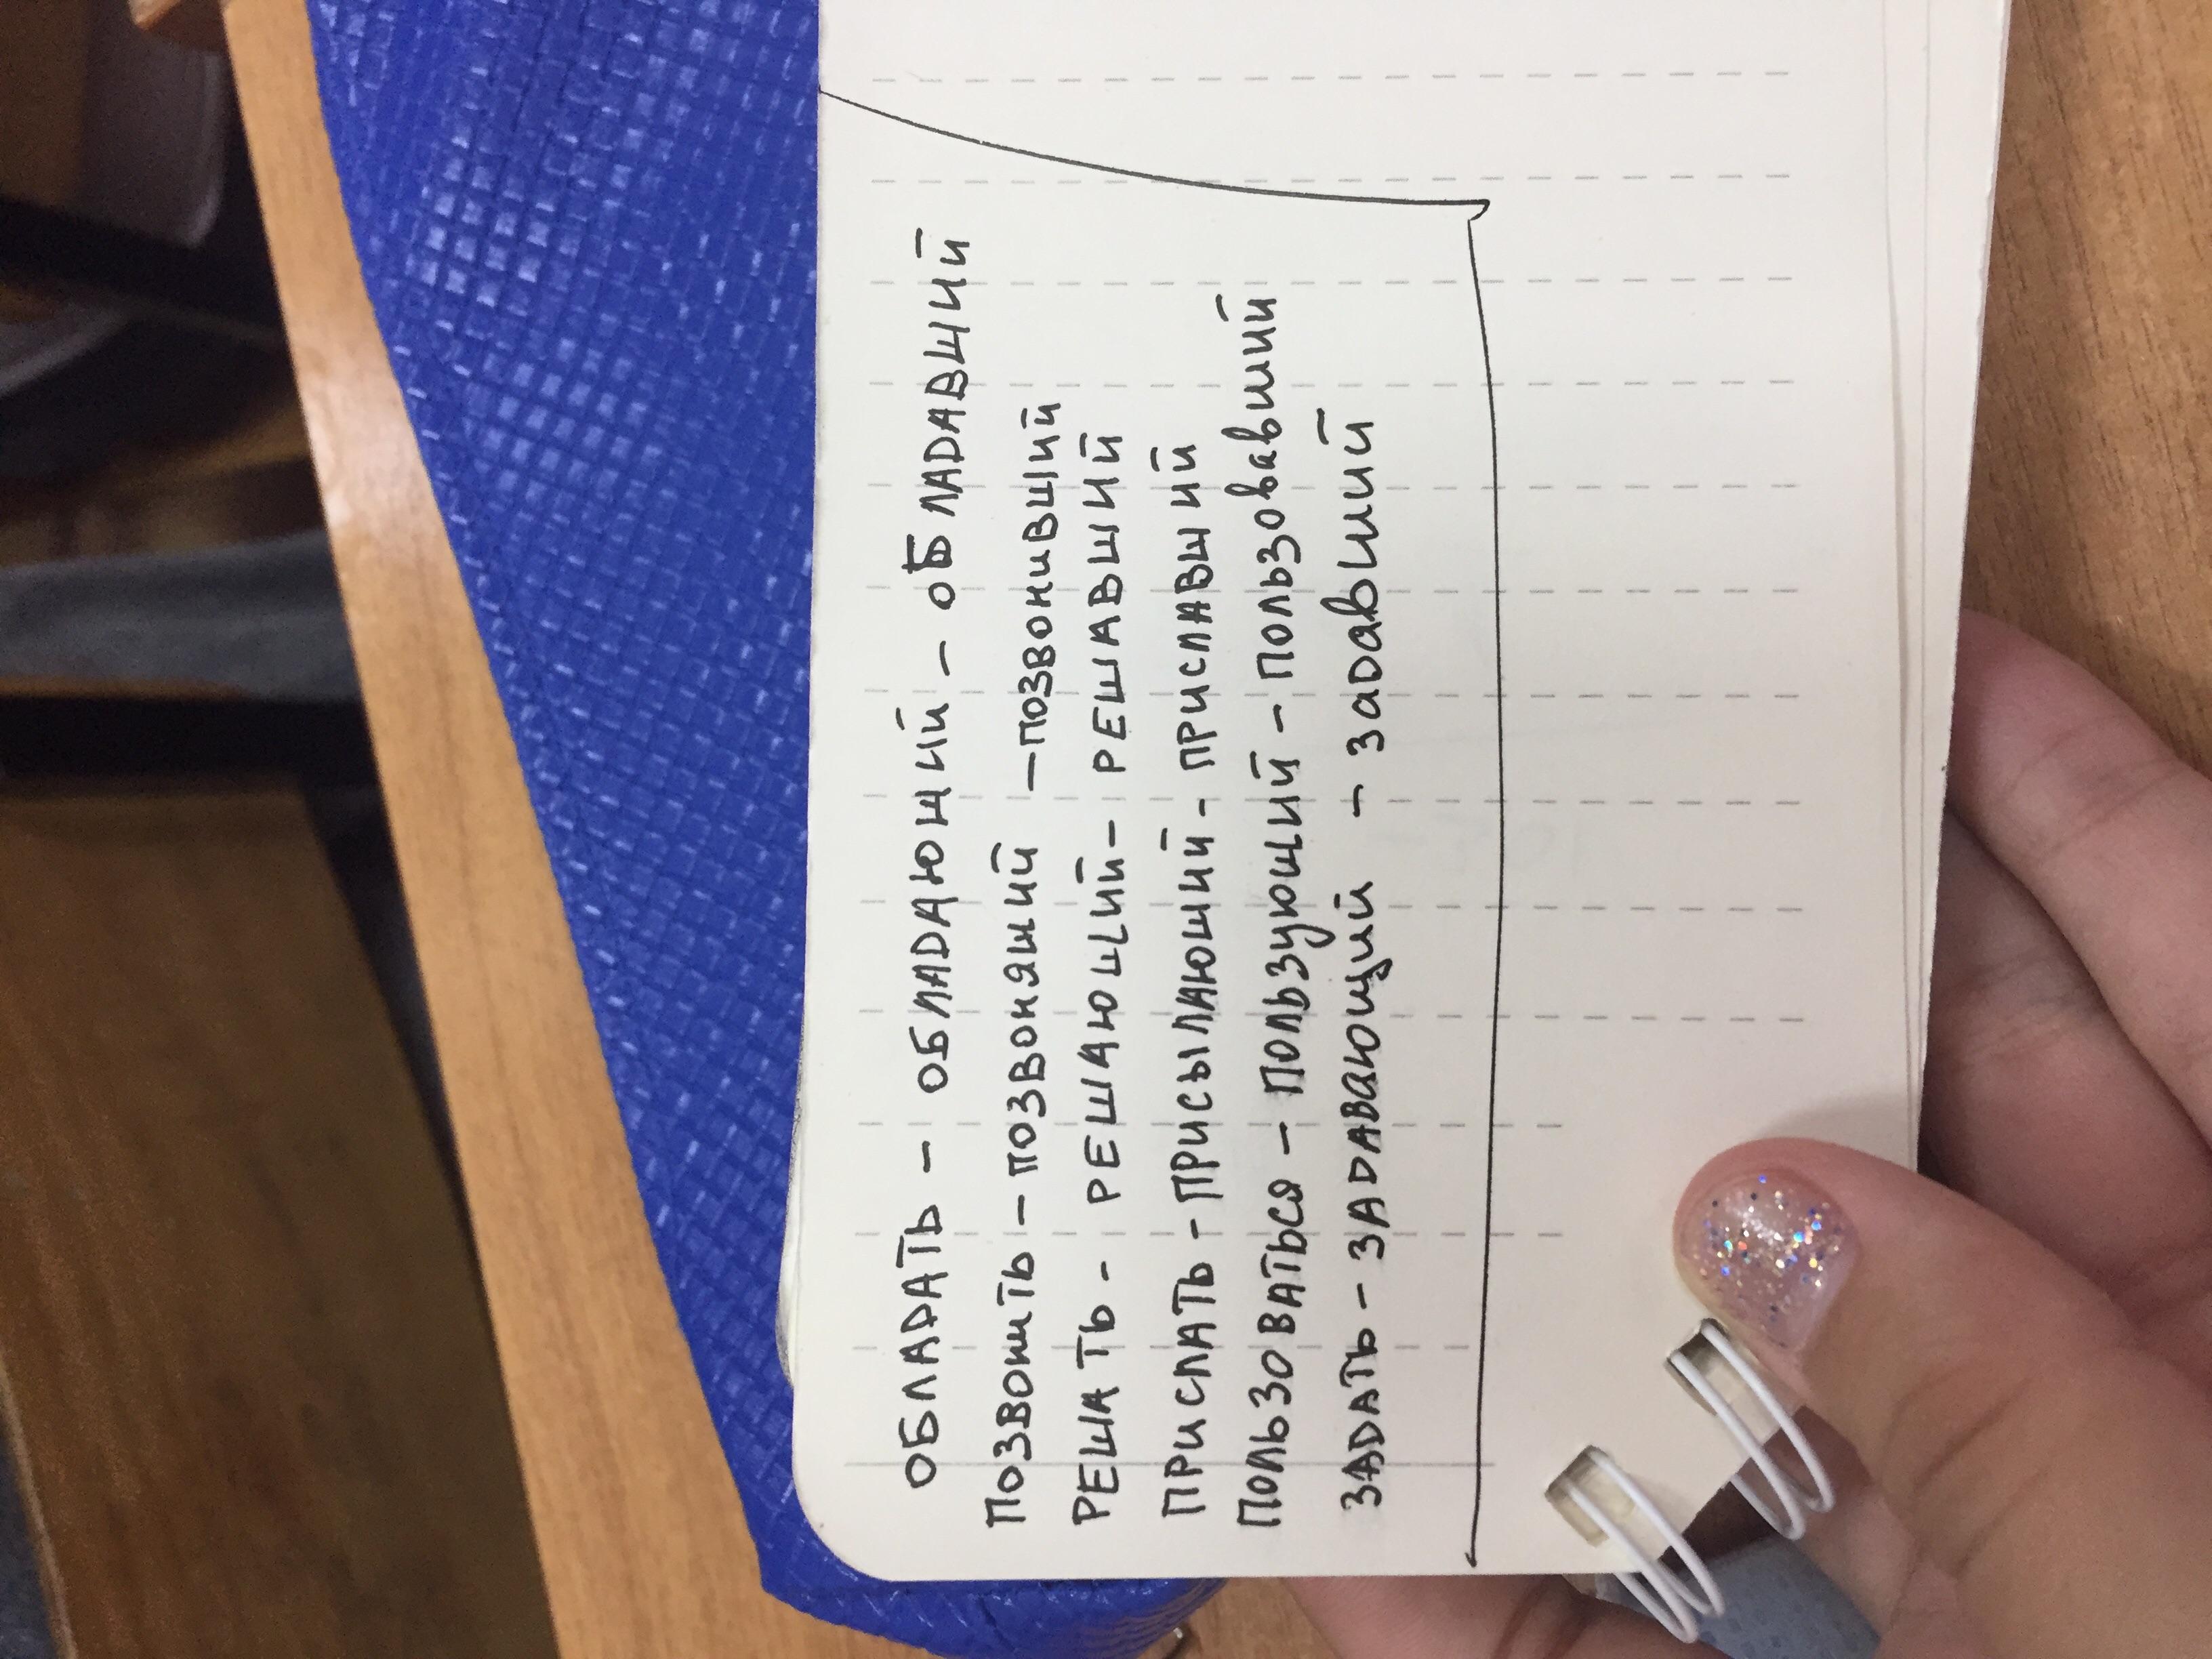 ОБЛАДАТЬ - ОБЛАДАЮЩИЙ - ОБЛАДАВШИЙ
ПОЗВОНИТЬ - ПОЗВОНЯЩИЙ - ПОЗВОНИВШИЙ
РЕШАТЬ - РЕШАЮЩИЙ - РЕШАВШИЙ
ПРИСЛАТЬ - ПРИСЫЛАЮЩИЙ - ПРИСЛАВШИЙ
ПОЛЬЗОВАТЬСЯ - ПОЛЬЗУЮЩИЙ - ПОЛЬЗОВАВШИЙ
ЗАДАТЬ - ЗАДАВАЮЩИЙ - ЗАДАВШИЙ